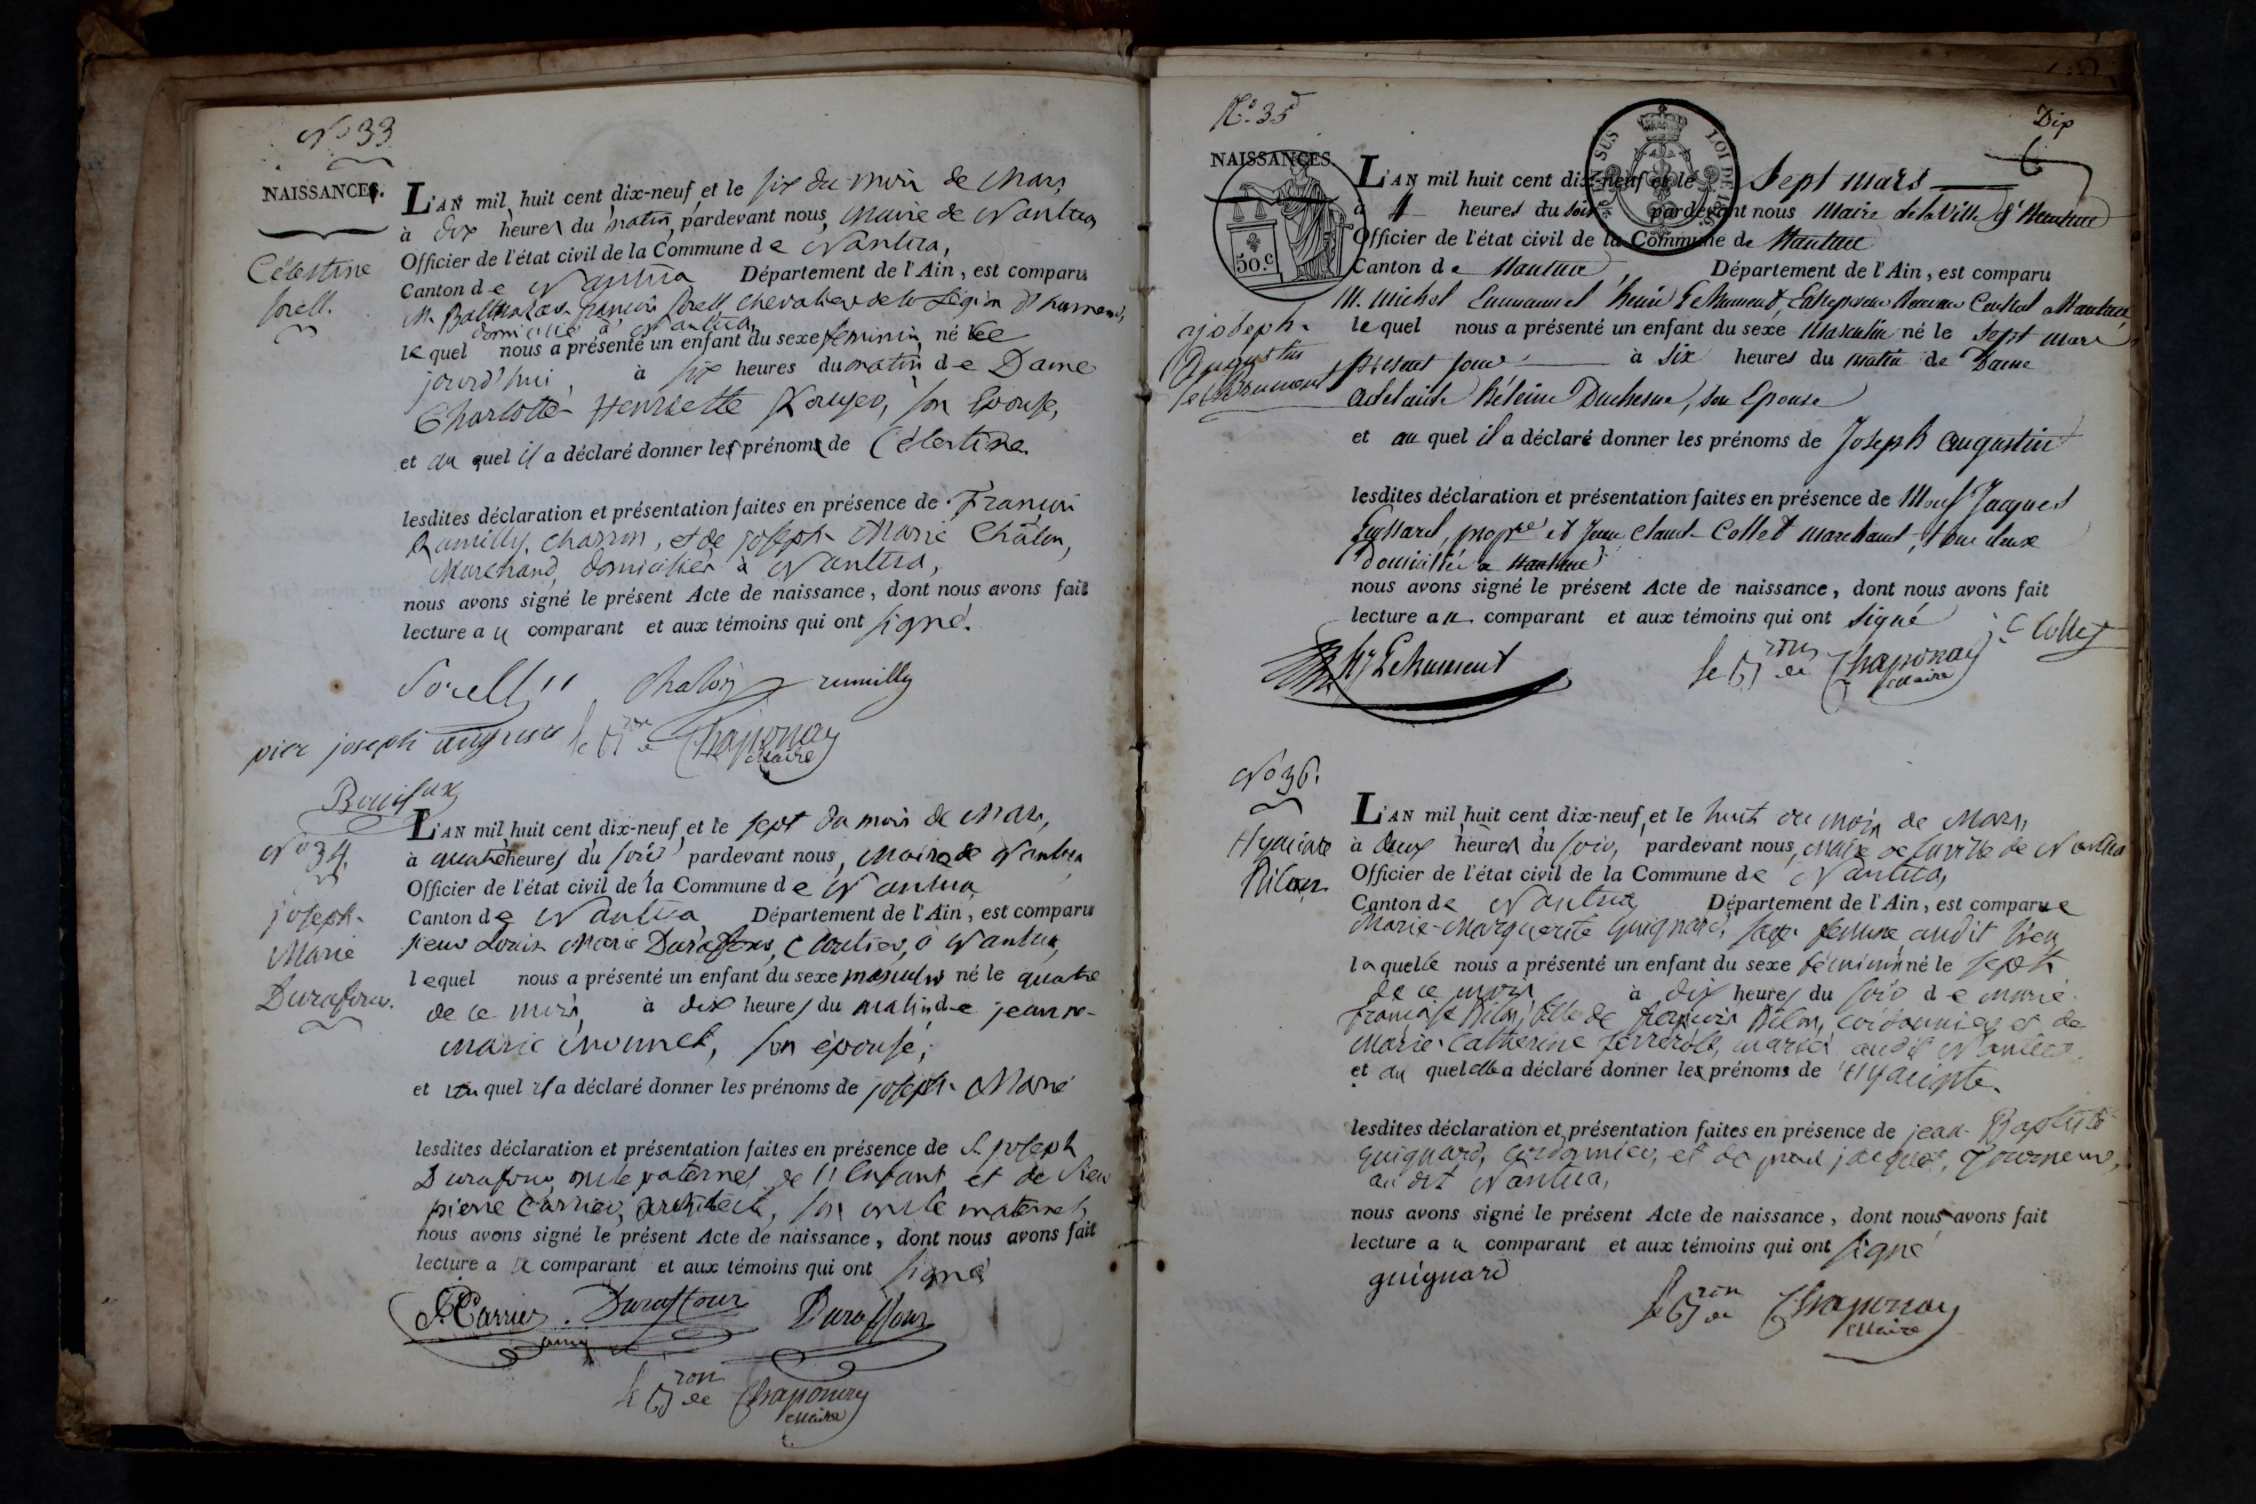 N° 33
NAISSANCES.
Célestine
Sorell.
L'AN mil huit cent dix-neuf, et le six du mois de Mars
à dix heures du matin, pardevant nous, Maire de Nantua
Officier de l'état civil de la Commune de Nantua,
Canton de Nantua Département de l'Ain, est comparu
M. Balthazar François Sorell, Chevalier de la Légion d'honneur,
domicilié à Nantua,
lequel nous a présenté un enfant du sexe féminin, né ce
jourd'hui, à six heures du matin de Dame
Charlotte Henriette son Epouse,
et au quel il a déclaré donner les prénoms de Célestine
lesdites déclaration et présentation faites en présence de François
Rumilly, charron, et de joseph Marie Châlon,
Marchand, domiciliés à Nantua,
nous avons signé le présent Acte de naissance, dont nous avons fait
lecture au comparant et aux témoins qui ont signé.
Sorell chalon rumilly
pier joseph auguste le Bon de Chaponay
Maire
N° 34.
joseph
Marie
Durafour.
L'AN mil huit cent dix-neuf, et le sept du mois de Mars,
à quatre heures du soir pardevant nous, Maire de Nantua
Officier de l'état civil de la Commune de Nantua
Canton de Nantua Département de l'Ain, est comparu
sieur Louis Marie Duraffour, Cloutier, à Nantua,
lequel nous a présenté un enfant du sexe masculin né le quatre
de ce mois, à dix heures du matin de jeanne-
marie son épouse;
et au quel il a déclaré donner les prénoms de joseph Marie
lesdites déclaration et présentation faites en présence de S. joseph
Durafour, oncle paternel de l'Enfant et de Sieur
pierre Carrier, architecte, son oncle maternel,
nous avons signé le présent Acte de naissance, dont nous avons fait
lecture au comparant et aux témoins qui ont signé
Carrier Duraffour Duraffour
le Bon de Chaponay
Maire
N° 35
Dix
NAISSANCES.
50.c
SUS LOI DE
joseph
Augustin
Lehmement
L'AN mil huit cent dix-neuf et le Sept mars
à heures du soir pardevant nous Maire de la Ville de Nantua
Officier de l'état civil de la Commune de Nantua
Canton de Nantua Département de l'Ain, est comparu
M. Michel Emmanuel henri Nantua
lequel nous a présenté un enfant du sexe Masculin né le Sept mars
présent jour à six heures du matin de Dame
adelaide Duchesne, son Epouse
et au quel il a déclaré donner les prénoms de Joseph augustin
lesdites déclaration et présentation faites en présence de Jacques
propre et Jean Claude Collet marchand, tous deux
domiciliés a Nantua
nous avons signé le présent Acte de naissance, dont nous avons fait
lecture au comparant et aux témoins qui ont signé
J C Collet
le Bon de Chaponay
Maire
N° 36.
Hyacinte
Pilon
L'AN mil huit cent dix-neuf, et le huit du mois de Mars,
à deux heures du soir, pardevant nous, Maire de la ville de Nantua
Officier de l'état civil de la Commune de Nantua,
Canton de Nantua Département de l'Ain, est comparue
Marie-Marguerite Guignard, sage femme audit lieu
laquelle nous a présenté un enfant du sexe féminin né le sept
de ce mois à dix heures du soir de Marie
françoise Pilon, fille de françois Pilon, cordonnier et de
Marie Catherine mariés audit Nantua
et au quel elle a déclaré donner les prénoms de Hyacinte.
lesdites déclaration et présentation faites en présence de jean Baptiste
Guignard, Cordonnier, et de jacquet, Tourneur,
au dit Nantua,
nous avons signé le présent Acte de naissance, dont nous avons fait
lecture au comparant et aux témoins qui ont signé
guignard
le Bon de Chaponay
Maire